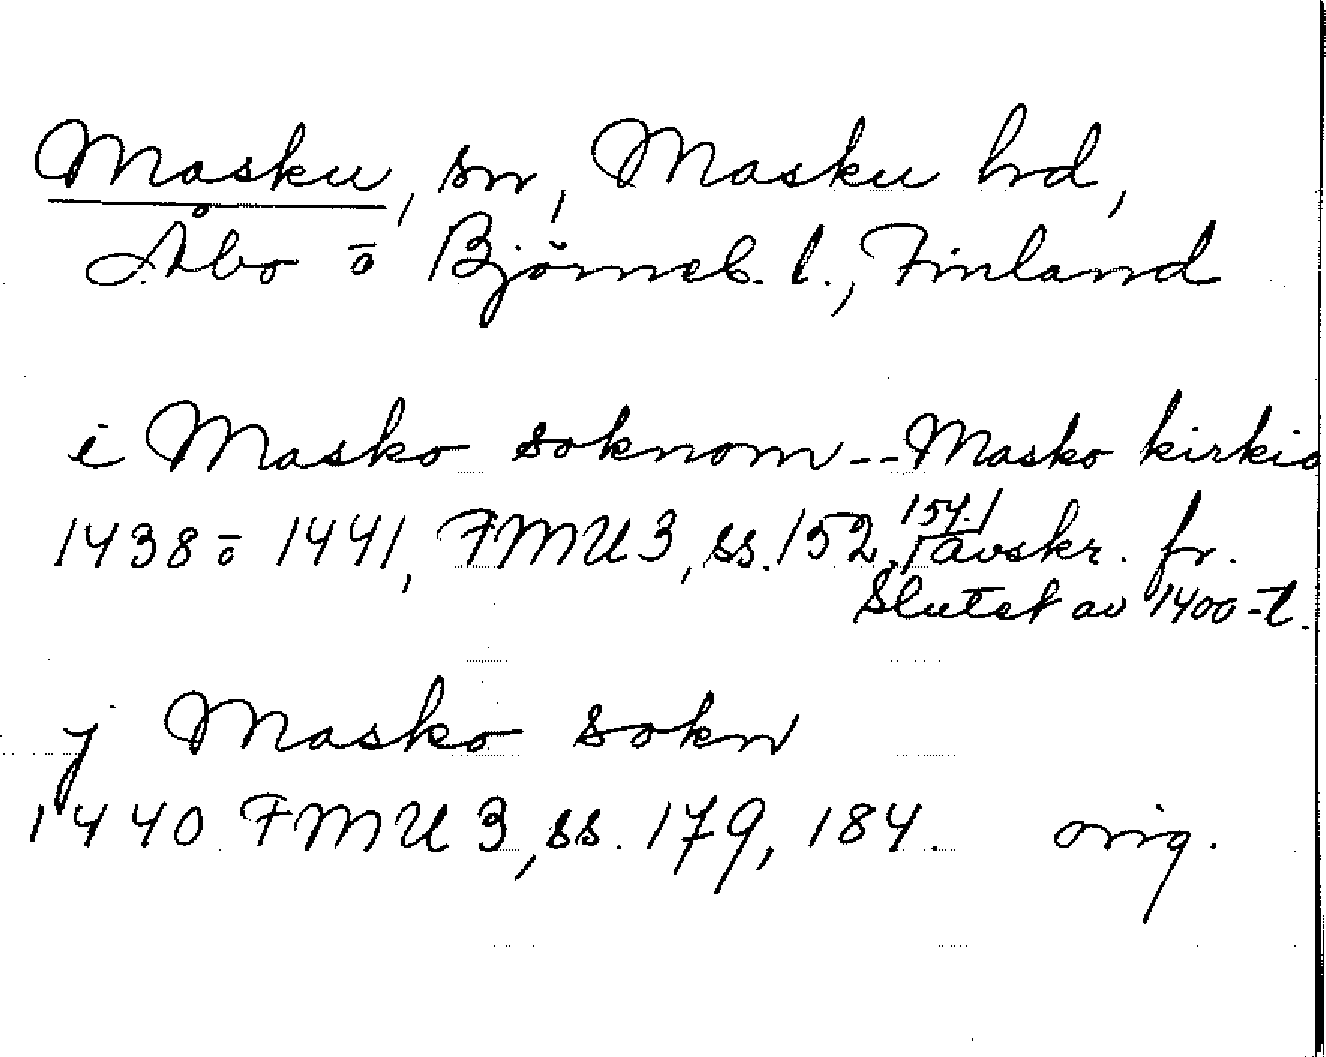 Masku, sn, Masku hd,
Åbo o Björneb. l., Finland
i Masko soknom -- Masko kirkio
1438 o 1441, FMU 3, ss. 152, 154 / avskr. fr.
slutet av 1400-t.
j Masko sokn
1440 FMU 3, ss. 179, 184. orig.